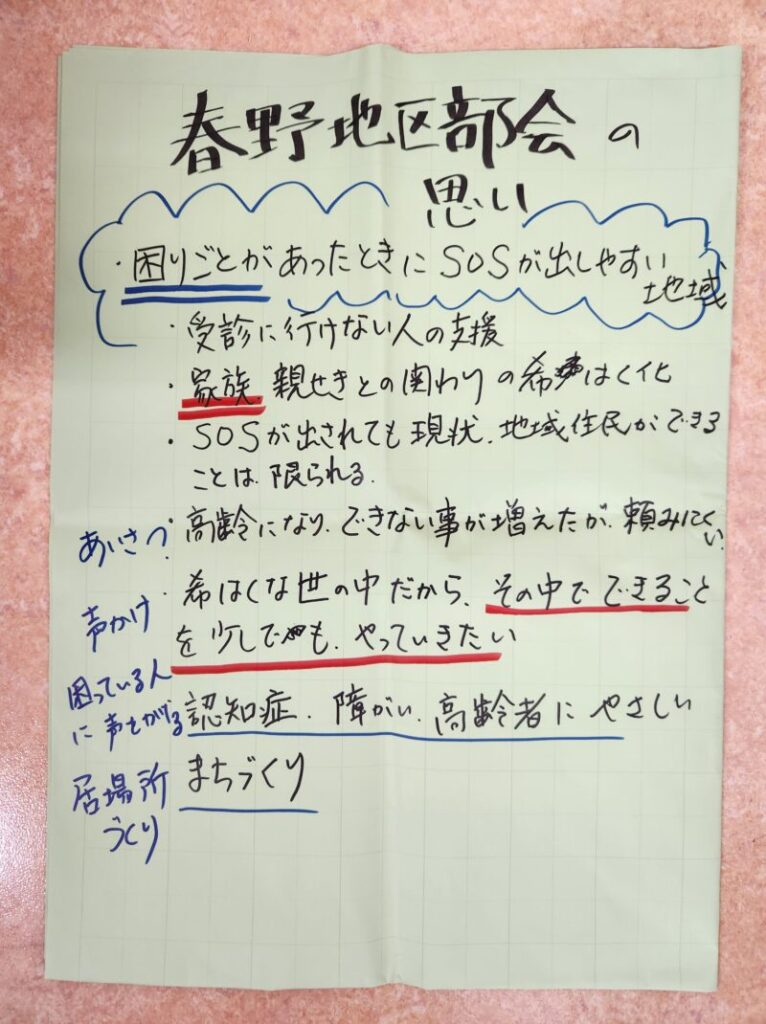 春野地区部会の
思い
・困りごとがあったときにSOSが出しやすい
地域
・受診に行けない人の支援
・家族、親せきとの関わりの希はく化
・SOSが出されても現状、地域住民ができる
ことは、限られる。
・高齢になり、できない事が増えたが、頼みにくい。
・希はくな世の中だから、その中でできること
を少しでも、やっていきたい
認知症、障がい、高齢者にやさしい
まちづくり
あいさつ
声かけ
困っている人
に声をかける
居場所
づくり